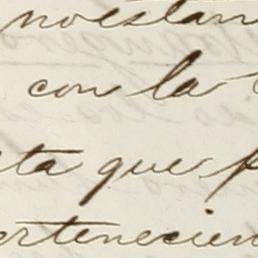 noestan
con la
ta que
ertenecien